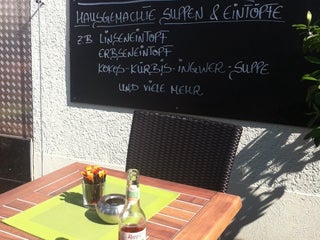 HAUSGEMACHTE SUPPEN & EINTÖPFE
Z.B. LINSENEINTOPF
ERBSENEINTOPF
KOKOS-KÜRBIS-INGWER-SUPPE
UND VIELE MEHR